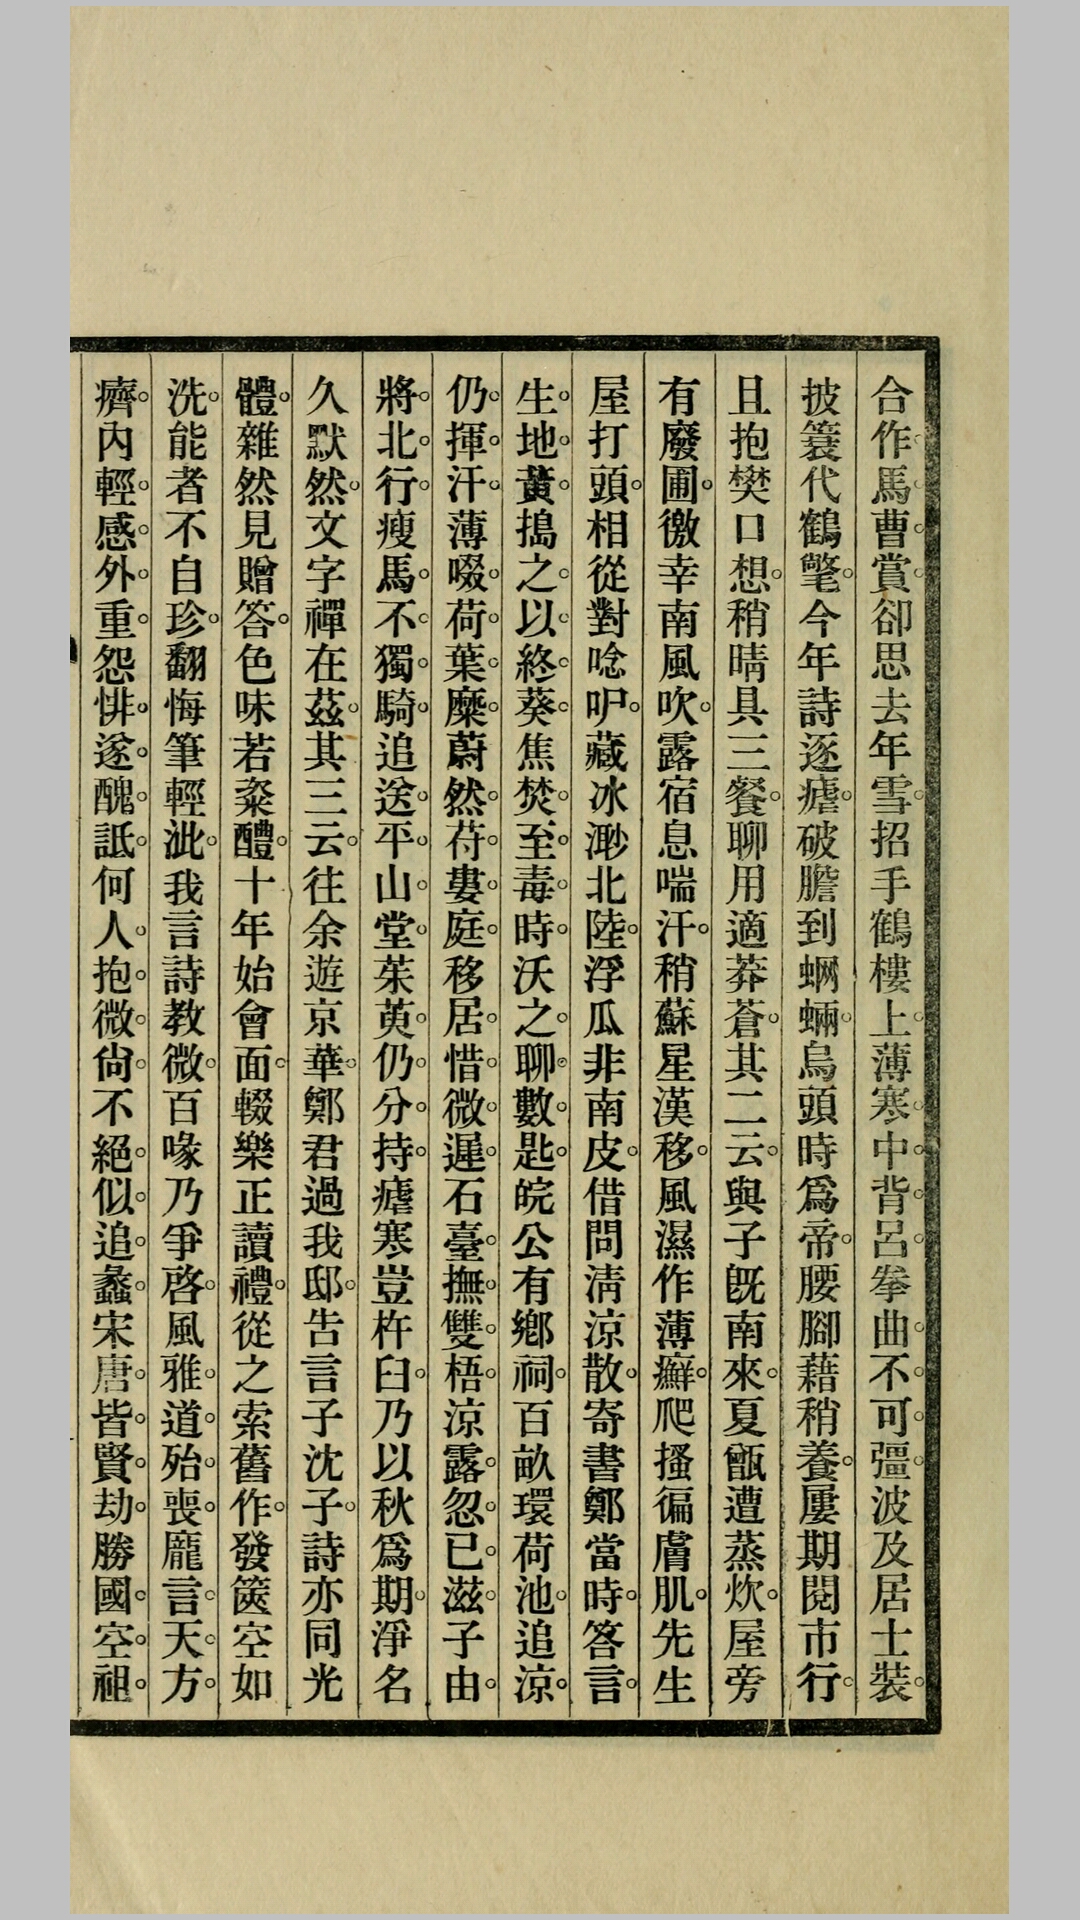 合作馬曹賞卻思去年雪招手鶴樓上薄寒中背呂拳曲不可彊波及居士裝
披簑代鶴氅今年詩逐瘧破膽到蜽蜽烏頭時爲帝腰腳藉稍養屢期閱市行
且抱樊口想稍晴具三餐聊用適莽蒼其二云與子旣南來夏甑遭蒸炊屋旁
有廢圃徼幸南風吹露宿息喘汗稍蘇星漢移風濕作薄癬爬搔徧膚肌先生
屋打頭相從對唸吚藏冰渺北陸浮瓜非南皮借問淸涼散寄書鄭當時答言
生地黃搗之以終葵焦焚至毒時沃之聊數匙皖公有鄉祠百畝環荷池追涼
仍揮汗薄啜荷葉糜蔚然苻婁庭移居惜微遲石臺撫雙梧涼露忽已滋子由
將北行瘦馬不獨騎追送平山堂茱萸仍分持瘧寒豈杵臼乃以秋爲期淨名
久默然文字禪在茲其三云往余遊京華鄭君過我邸告言子沈子詩亦同光
體雜然見贈答色味若粢醴十年始會面輟樂正讀禮從之索舊作發篋空如
洗能者不自珍翻悔筆輕泚我言詩教微百喙乃爭啓風雅道殆喪厖言天方
癠內輕感外重怨悱遂醜詆何人抱微尙不絕似追蠡宋唐皆賢劫勝國空祖